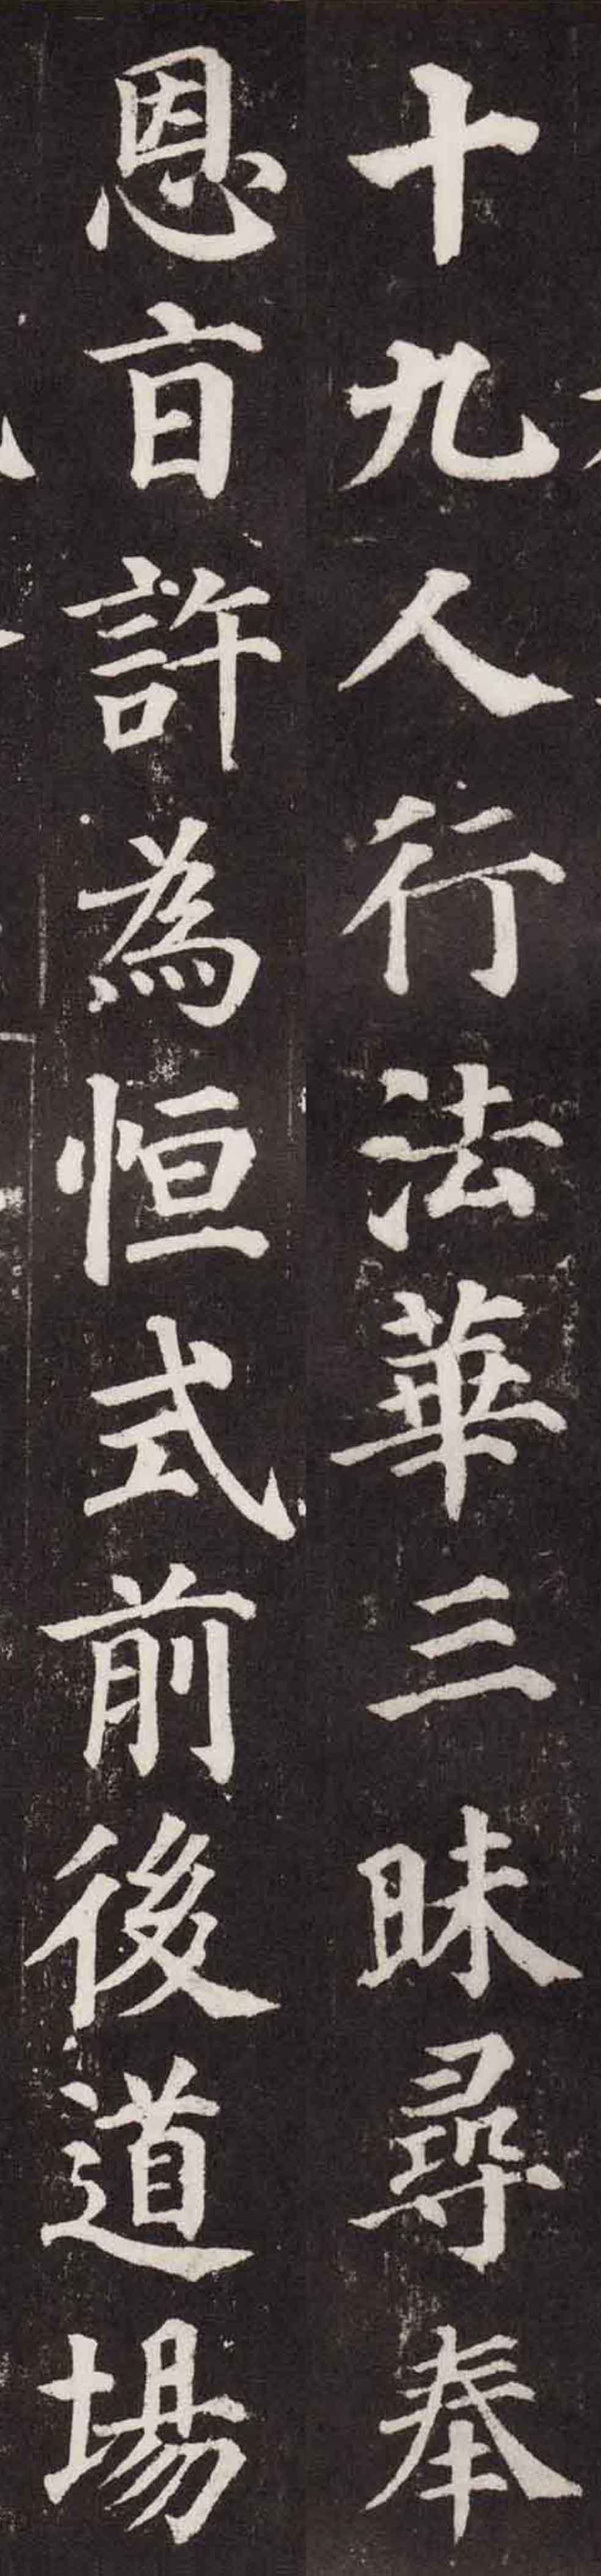 十九人行法華三昧尋奉
恩旨許為恒式前後道場